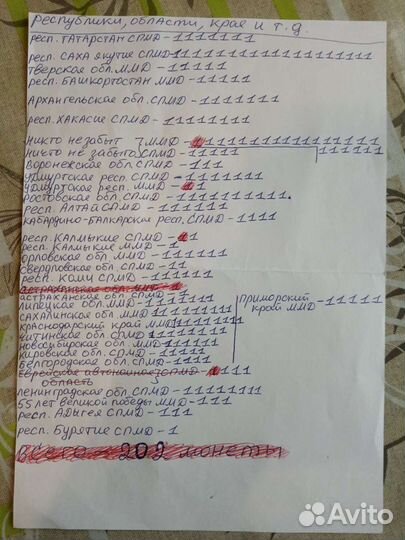 республики, области, края и т.д.
респ. Татарстан СПМД-1111111
респ. Саха Якутия СПМД-11111111111111
Тверская обл. ММД-11111
респ. Башкортостан ММД-11111
Архангельская обл. СПМД-1111111
респ. Хакасие СПМД-1111111
Никто не забыт 7 ММД-1111111111111111
ничто не забыто СПМД-11111 | 111111
Воронежская обл. СПМД-111
Удмуртская респ. СПМД-1111111
Удмуртская респ. ММД-11
Ростовская обл. СПМД-1111111111.
респ. Алтай СПМД-111111
Кабардино-Балкарская респ. СПМД-1111
респ. Калмыкие СПМД-11
респ. Калмыкие ММД-1
Орловская обл. ММД-111111
Свердловская обл. СПМД-11
респ. Коми СПМД-111111
Астраханская обл. ММД-1
астраханская обл. СПМД-1
Липецкая обл. ММД-111111
Сахалинская обл. ММД-11111111
Краснодарский край ММД-11111111
Читинская обл. СПМД-11111
Новосибирская обл. ММД-1111
Кировская обл. СПМД-11111
Белгородская обл. СПМД-1111
Приморский край ММД-11111
Еврейская автономная СПМД-1111
область
Ленинградская обл. СПМД-11111111
55 лет великой победы ММД-111
респ. Адыгея СПМД-111
респ. Бурятие СПМД-1
всего - 202 монеты
Avito